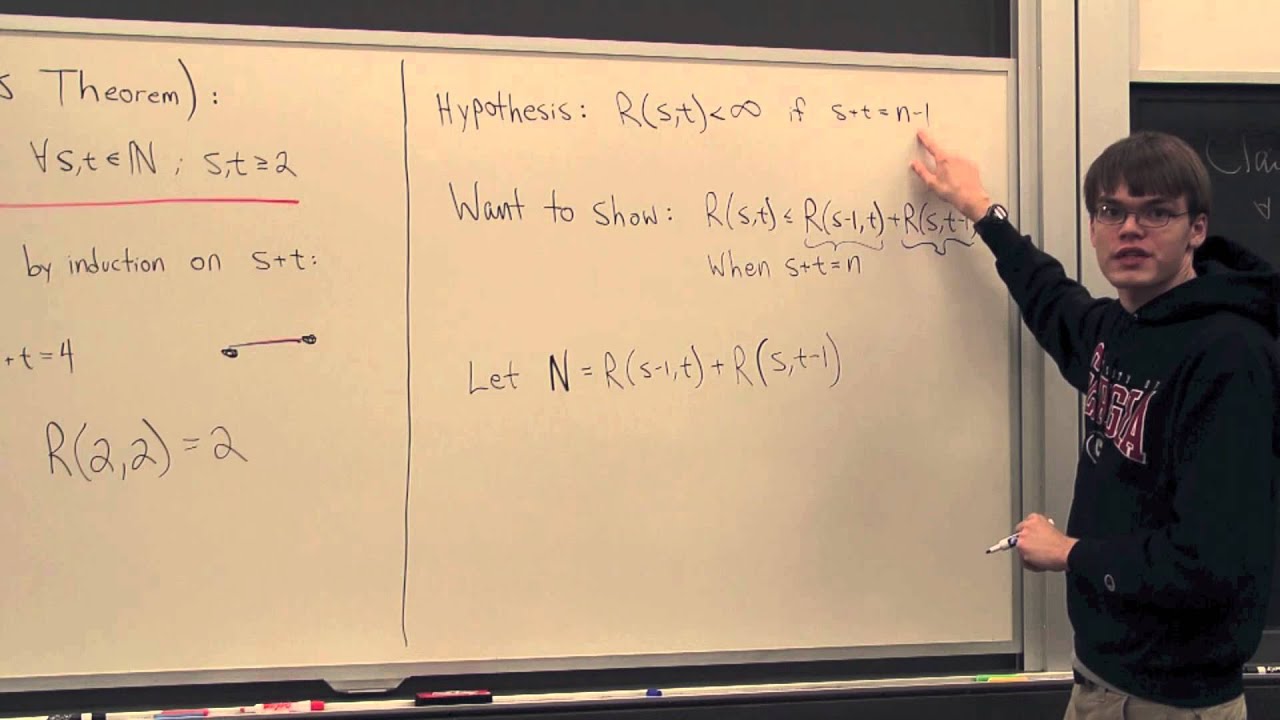 s Theorem):
∀s,t∈ℕ ; s,t≥2
by induction on s+t:
+t=4
R(2,2)=2
Hypothesis: R(s,t)<∞ if s+t=n-1
Want to show: R(s,t)≤R(s-1,t)+R(s,t-1
When s+t=n
Let N=R(s-1,t)+R(s,t-1)